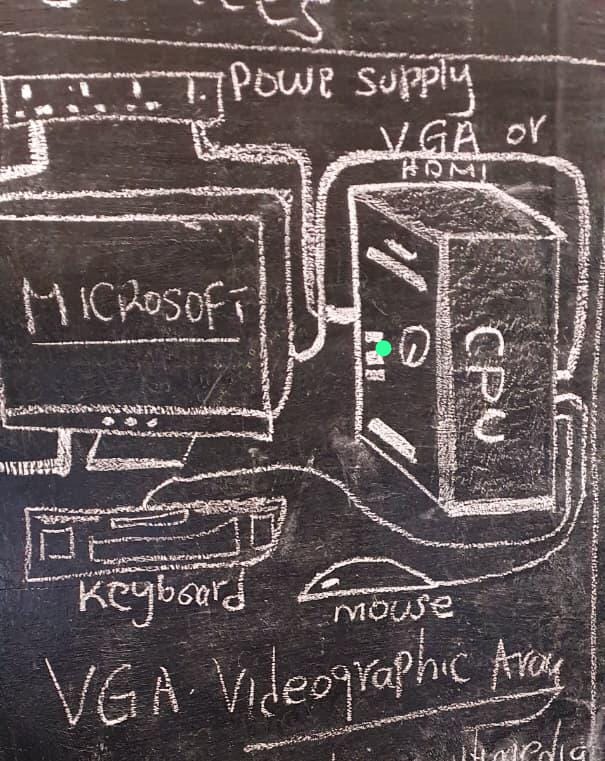 Powe supply
VGA or
HDMI
MICROSOFT
CPU
Keyboard
mouse
VGA. Videographic Array